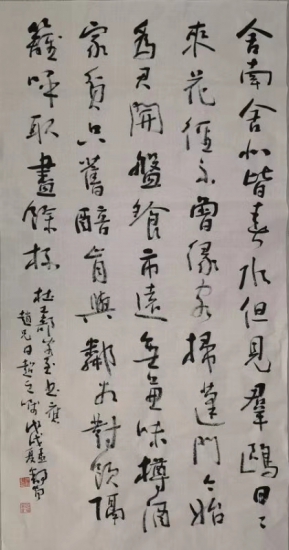 舍南舍北皆春水但見羣鷗日〻
來花徑不曾緣客掃蓬門今始
爲君開盤飧市遠無兼味樽酒
家貧只舊醅肯與鄰對飲隔
籬呼取盡餘杯 杜甫客至書應
趙兄日超之囑戊戌夏